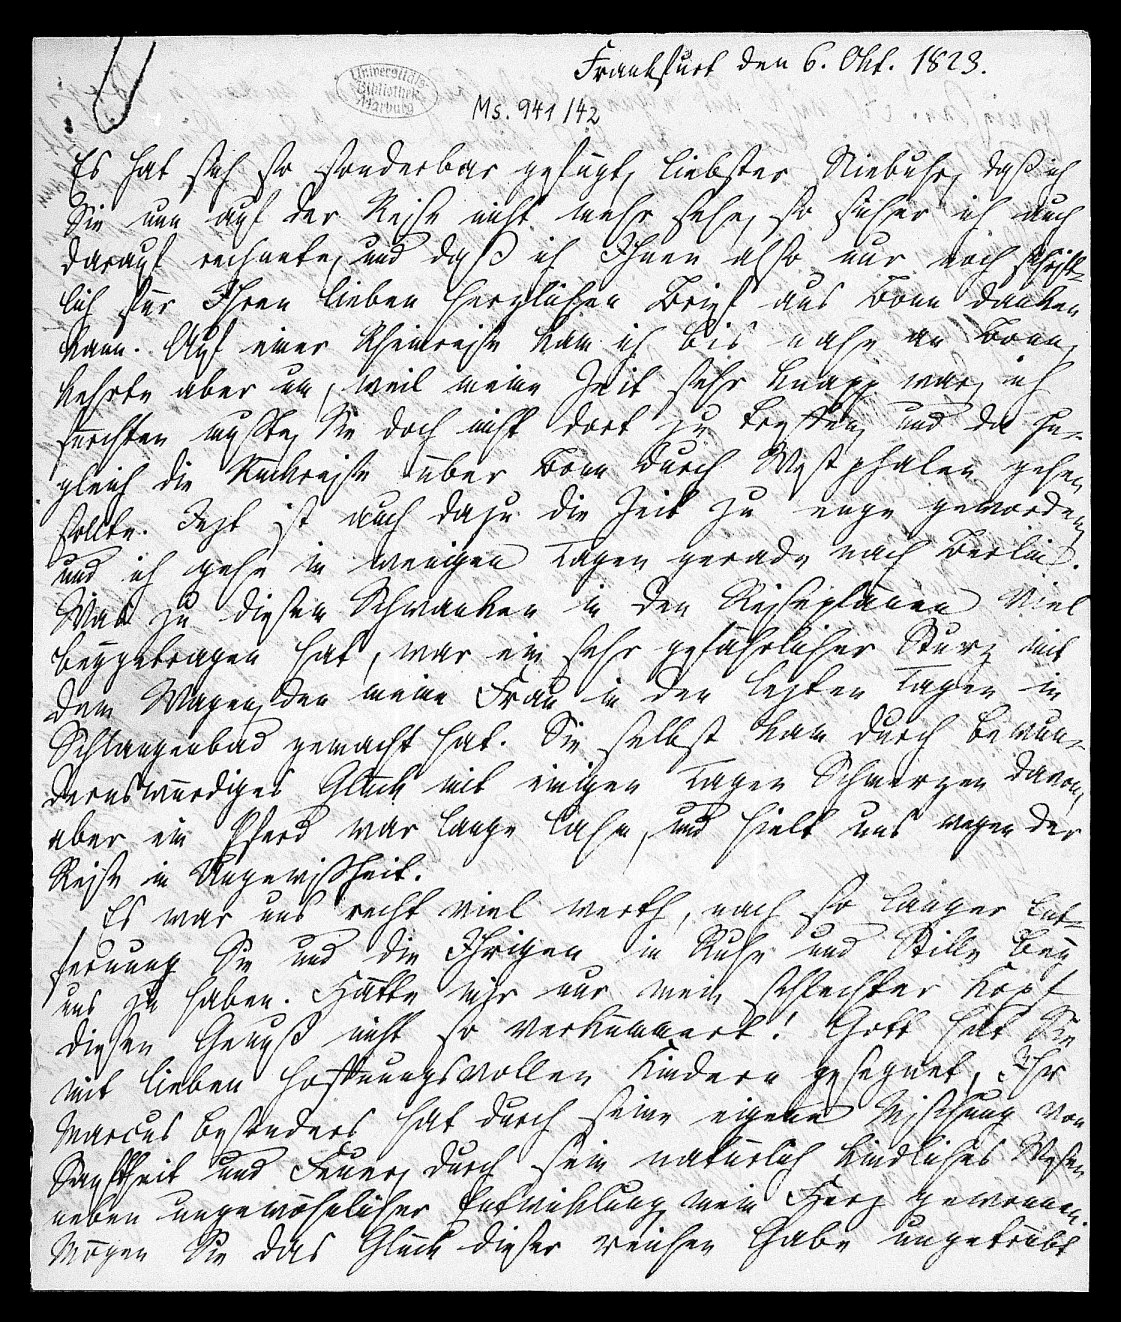 Frankfurt den 6. Okt. 1823.
Universitäts
Bibliothek
Marburg
Ms. 941/42
Es hat sich so sonderbar gefügt, liebster Niebuhr, daß ich
Sie nun auf der Reise nicht mehr sehe, so sicher ich auch
darauf rechnete, und daß ich Ihnen also nur noch schrift-
lich für Ihren lieben herzlichen Brief aus Bonn danken
kann. Auf einer Rheinreise kam ich bis nahe an Bonn,
kehrte aber um, weil meine Zeit sehr knapp war, ich
fürchten mußte, Sie doch nicht dort zu treffen, und da zu-
gleich die Rückreise über Bonn durch Westphalen gehen
sollte. Jezt ist auch dazu die Zeit zu enge geworden,
und ich gehe in wenigen Tagen gerade nach Berlin.
Was zu diesem Schwanken in den Reiseplänen viel
beygetragen hat, war ein sehr gefährlicher Sturz mit
dem Wagen, den meine Frau in den lezten Tagen in
Schlangenbad gemacht hat. Sie selbst kam durch bewun-
dernswürdiges Glück mit einigen Tagen Schmerzen davon,
aber ein Pferd war lange lahm, und hielt uns wegen der
Reise in Ungewißheit.
Es war uns recht viel werth, nach so langer Ent-
fernung Sie und die Ihrigen in Ruhe und Stille bey
uns zu haben. Hätte mir nur mein schlechter Kopf
diesen Genuß nicht so verkümmert! Gott hat Sie
mit lieben hoffnungsvollen Kindern gesegnet, Ihr
Marcus besonders hat durch seine eigene Mischung von
Sanftheit und Feuer, durch sein natürlich kindliches Wesen
neben ungewöhnlicher Entwicklung mein Herz gewonnen.
Mögen Sie das Glück dieser reichen Habe ungetrübt